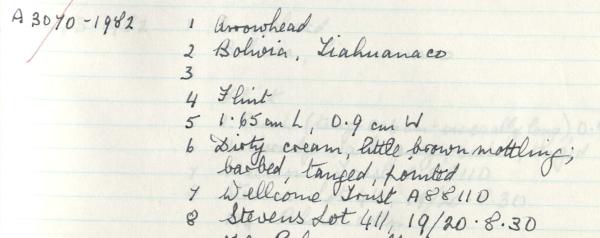 A 3070-1982 1 Arrowhead
2 Bolivia, Tiahuanaco
3
4 Flint
5 1.65 cm L, 0.9 cm W
6 Dirty cream, little brown mottling;
barbed, tanged, pointed
7 Wellcome Trust A88110
8 Stevens Lot 411, 19/20.8.30